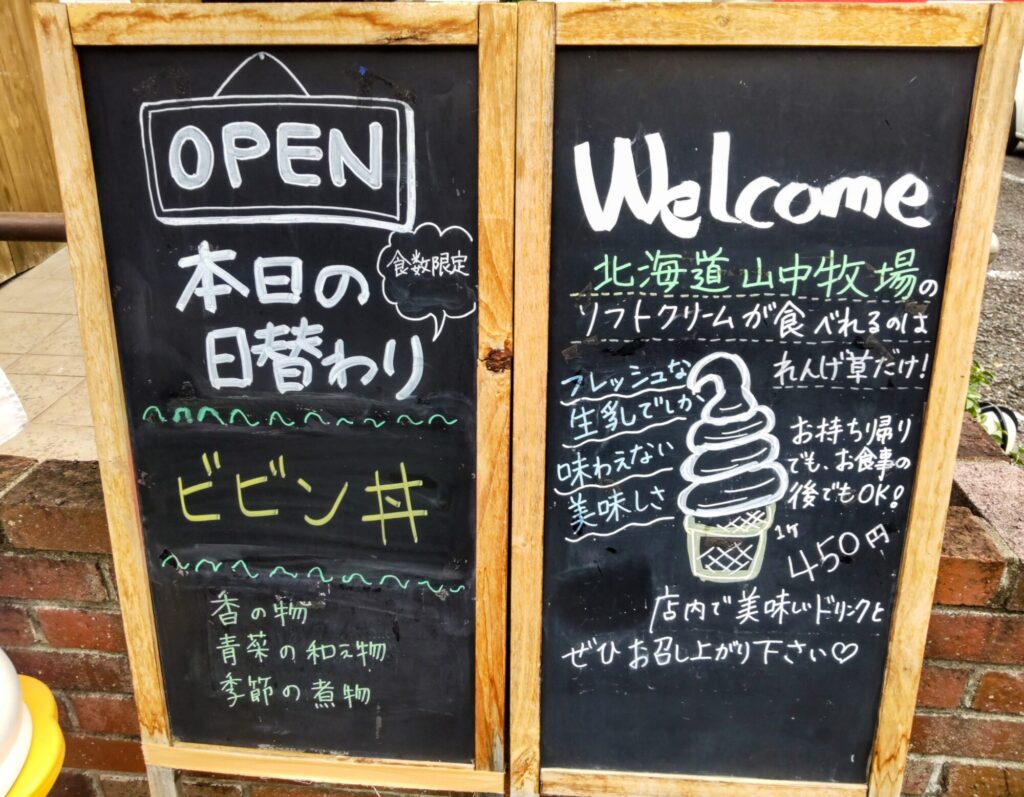 OPEN
本日の
食数限定
日替わり
ビビン丼
香の物
青菜の和え物
季節の煮物
Welcome
北海道山中牧場の
ソフトクリームが食べれるのは
れんげ草だけ!
フレッシュな
生乳でしか
味わえない
美味しさ
お持ち帰り
でも、お食事の
後でもOK!
1ケ
450円
店内で美味しいドリンクと
ぜひお召し上がり下さい♡